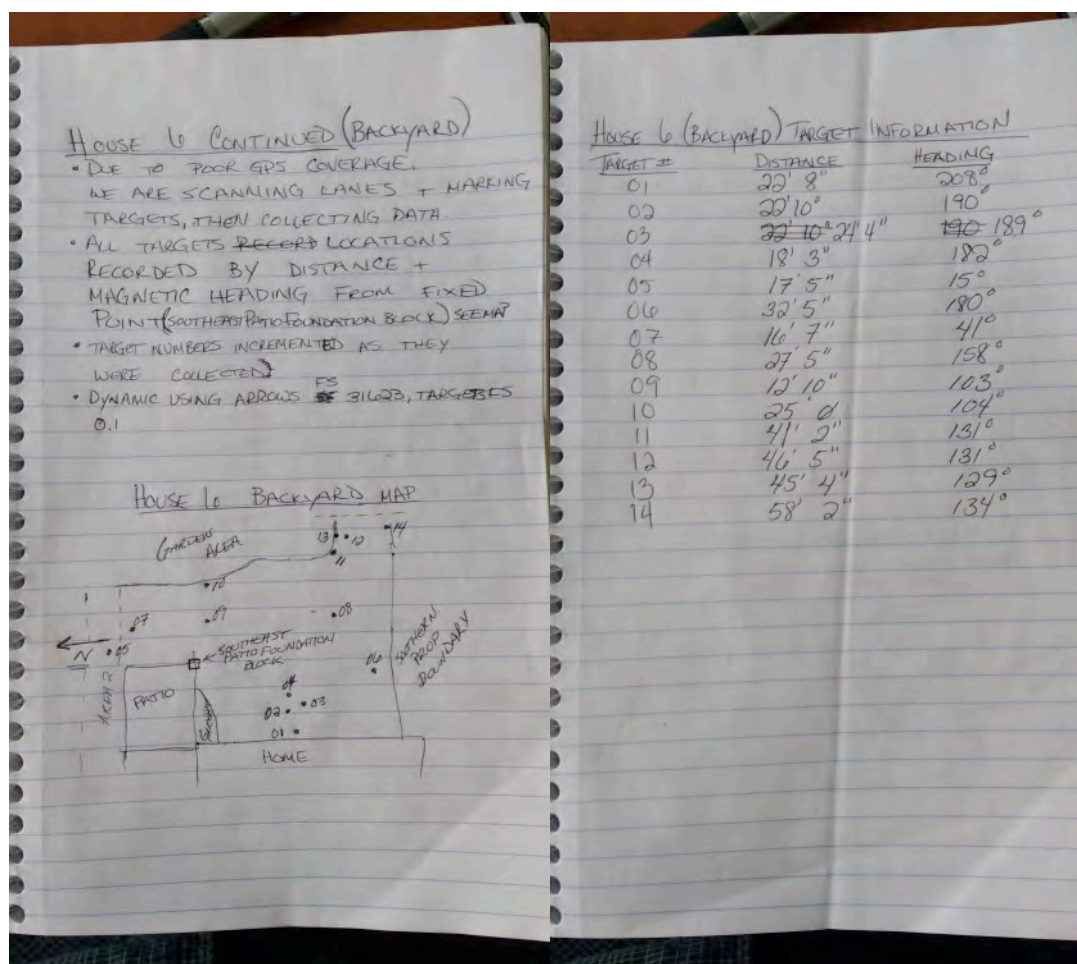 HOUSE 6 CONTINUED (BACKYARD)
• DUE TO POOR GPS COVERAGE.
WE ARE SCANNING LANES + MARKING
TARGETS, THEN COLLECTING DATA.
• ALL TARGETS RECORD LOCATIONS
RECORDED BY DISTANCE +
MAGNETIC HEADING FROM FIXED
POINT (SOUTHEAST PATIO FOUNDATION BLOCK) SEE MAP
• TARGET NUMBERS INCREMENTED AS THEY
WERE COLLECTED
• DYNAMIC USING ARROWS FS 31623, TARGETS ES
0.1
HOUSE 6 BACKYARD MAP
GARDEN
AREA
13
12
14
11
10
07
09
08
N
05
SOUTHEAST
PATIO FOUNDATION
BLOCK
06
SOUTHERN
PROP
BOUNDARY
AREA 2
PATIO
04
02
03
01
HOME
HOUSE 6 (BACKYARD) TARGET INFORMATION
TARGET # DISTANCE HEADING
01 22' 8" 208°
02 22' 10" 190°
03 22' 10" 24' 4" 190 189°
04 18' 3" 182°
05 17' 5" 15°
06 32' 5" 180°
07 16' 7" 41°
08 27' 5" 158°
09 12' 10" 103°
10 25' 0 104°
11 41' 2" 131°
12 46' 5" 131°
13 45' 4" 129°
14 58' 2" 134°